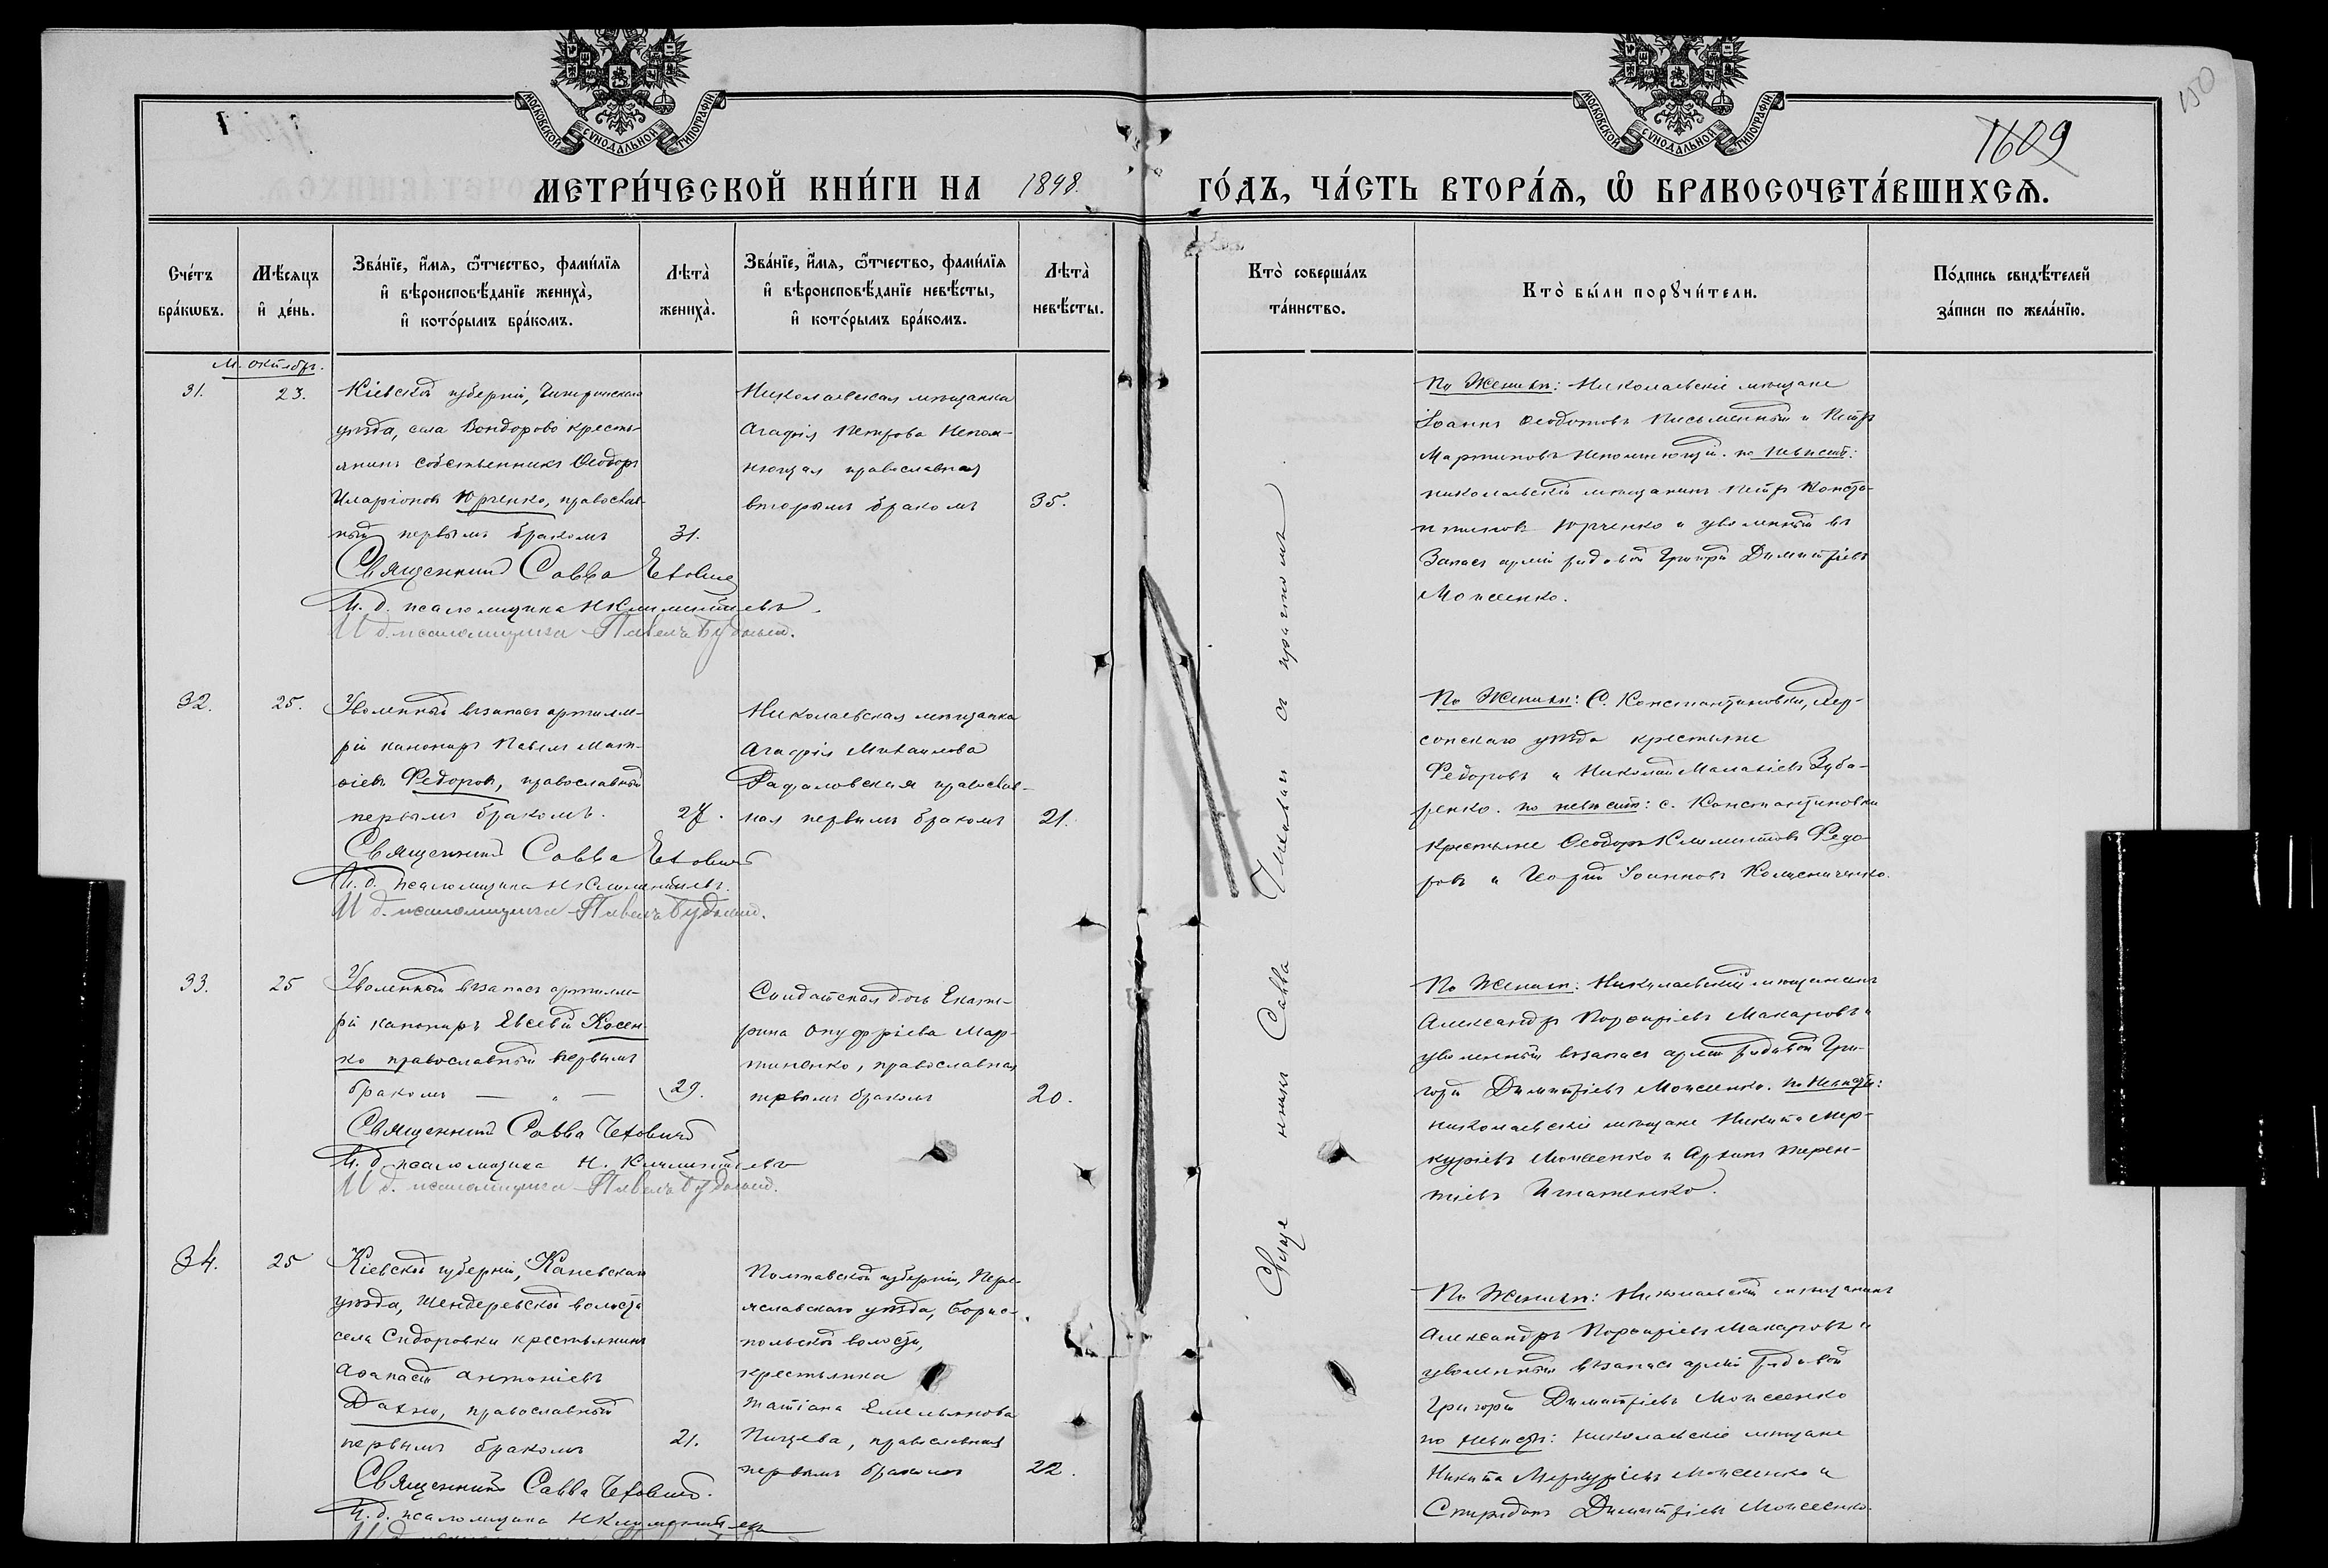 МОСКОВСКОЙ СѴНОДАЛЬНОЙ ТИПОГРАФІИ
МОСКОВСКОЙ СѴНОДАЛЬНОЙ ТИПОГРАФІИ
150
1609
МЕТРИ́ЧЕСКОЙ КНИ́ГИ НА 1898. ГО́ДЪ, ЧА́СТЬ ВТОРА́Ѧ, Ѽ БРАКОСОЧЕТА́ВШИХСѦ.
Сче́тъ
бра́кѡвъ.
Мѣ́сяцъ
и҆ де́нь.
Зва́нїе, и҆́мя, ѻ҆́тчество, фами́лїя
и҆ вѣроисповѣ́данїе жениха̀,
и҆ кото́рымъ бра́комъ.
Лѣта̀
жениха̀.
Зва́нїе, и҆́мя, ѻ҆́тчество, фами́лїя
и҆ вѣроисповѣ́данїе невѣ́сты,
и҆ кото́рымъ бра́комъ.
Лѣта̀
невѣ́сты.
Кто̀ соверша́лъ
та́инство.
Кто̀ бы́ли порꙋчи́тели.
По́дпись свидѣ́телей
за́писи по жела́нїю.
М. октябрь.
31.
23.
Кіевской губерніи, Чигиринскаго
уѣзда, села Бондорово кресть-
янинъ собственникъ Ѳеодоръ
Иларіоновъ Юрченко, православ-
ный первымъ бракомъ
31.
Священникъ Савва Чехович
И. д. псаломщика Н Климентьевъ
И д. псаломщика Павелъ
Николаевская мѣщанка
Агафія Петрова Непом-
нющая православная
вторымъ бракомъ
35.
По Женихѣ: Николаевскіе мѣщане
Іоаннъ Ѳеодотовъ Письменный и Петръ
Мартиновъ Непомнющій. по Невѣстѣ:
николаевскій мѣщанинъ Петръ Конста-
нтиновъ Юрченко и уволенный въ
Запасъ арміи рядовой Григорій Димитріевъ
Моисеенко.
32.
25.
Уволенный въ запасъ артилле-
ріи канониръ Павелъ Мат-
ѳіевъ Федоровъ, православный
первымъ бракомъ.
27.
Священникъ Савва Чеховичъ
И. д. псаломщика Н Климентьевъ.
И д. псаломщика Павелъ
Николаевская мѣщанка
Агафія Михаилова
Рафаловская православ-
ная первымъ бракомъ
21.
По Женихѣ: С. Константиновки, Хер-
сонскаго уѣзда крестьяне
Федоровъ и Николай Малахіевъ Зуба-
ренко. по невѣстѣ: с. Константиновки
крестьяне Ѳеодоръ Климентовъ Федо-
ровъ и Георгій Іоанновъ Колисниченко.
33.
25
Уволенный въ запасъ артилле-
ріи канониръ Евсевій Косен-
ко православный первымъ
бракомъ — " —
29.
Священникъ Савва Чеховичъ
И. д. псаломщика Н. Климентьевъ
И д. псаломщика Павелъ
Солдатская дочь Екате-
рина Онуфріева Мар-
тиненко, православная
первымъ бракомъ
20.
По Женихѣ: Николаевскій мѣщанинъ
Александръ Порфиріевъ Макаровъ и
уволенный въ запасъ арміи рядовой Гри-
горій Димитріевъ Моисеенко. по Невѣстѣ:
николаевскіе мѣщане Никита Мер-
куріевъ Моисеенко и Архипъ Терен-
тіевъ Игнатенко.
34.
25
Кіевской губерніи, Каневскаго
уѣзда, Шендеревской волости
села Сидоровки крестьянинъ
Аѳанасій Антоніевъ
Дахно, православный
первымъ бракомъ
21.
Священникъ Савва Чеховичъ.
И. д. псаломщика Н Климентьевъ
Полтавской губерніи, Пере-
яславскаго уѣзда, Борис-
польской волости,
крестьянка
Татіана Емельянова
Пищева, православная
первымъ бракомъ
22.
По Женихѣ: Николаевскій мѣщанинъ
Александръ Порфиріевъ Макаровъ и
уволенный въ запасъ арміи рядовой
Григорій Димитріевъ Моисеенко
по Невѣстѣ: Николаевскіе мѣщане
Никита Меркуріевъ Моисеенко и
Спиридонъ Димитріевъ Моисеенко.
Священникъ Савва Чеховичъ съ причтомъ.